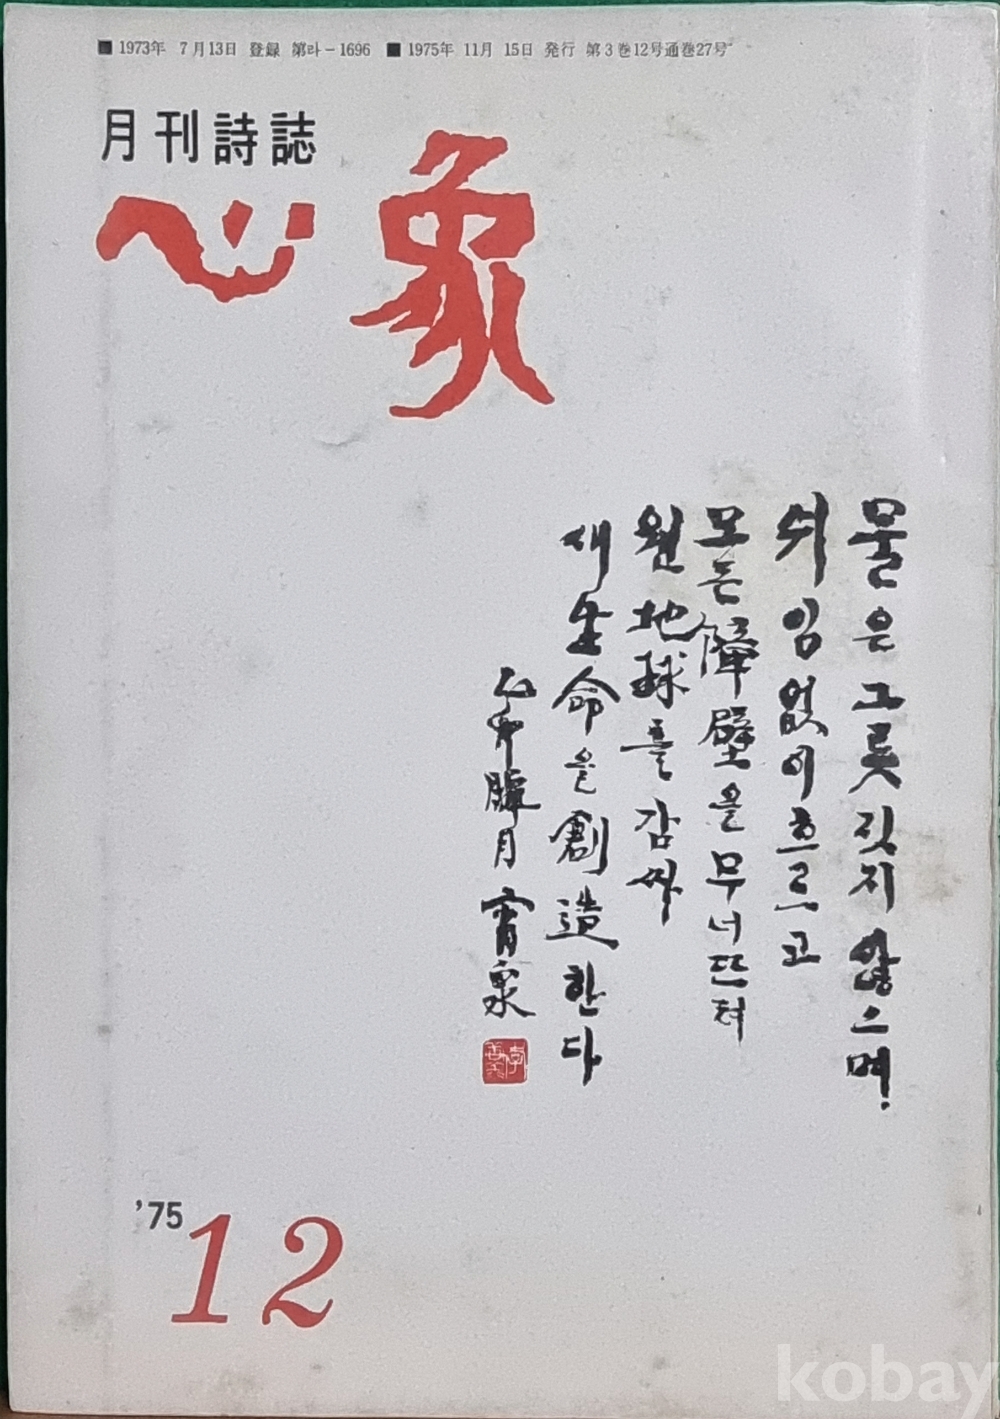 ■ 1973年 7月13日 登録 第라-1696 ■ 1975年 11月 15日 発行 第3巻12号通巻27号
月刊詩誌
心象
물은 그릇 짓지 않으며.
쉬임없이 흐르고
모든 障壁을 무너뜨려
원 地球를 감싸
새 生命을 創造한다
乙卯臘月 宵泉
'75
12
kobay